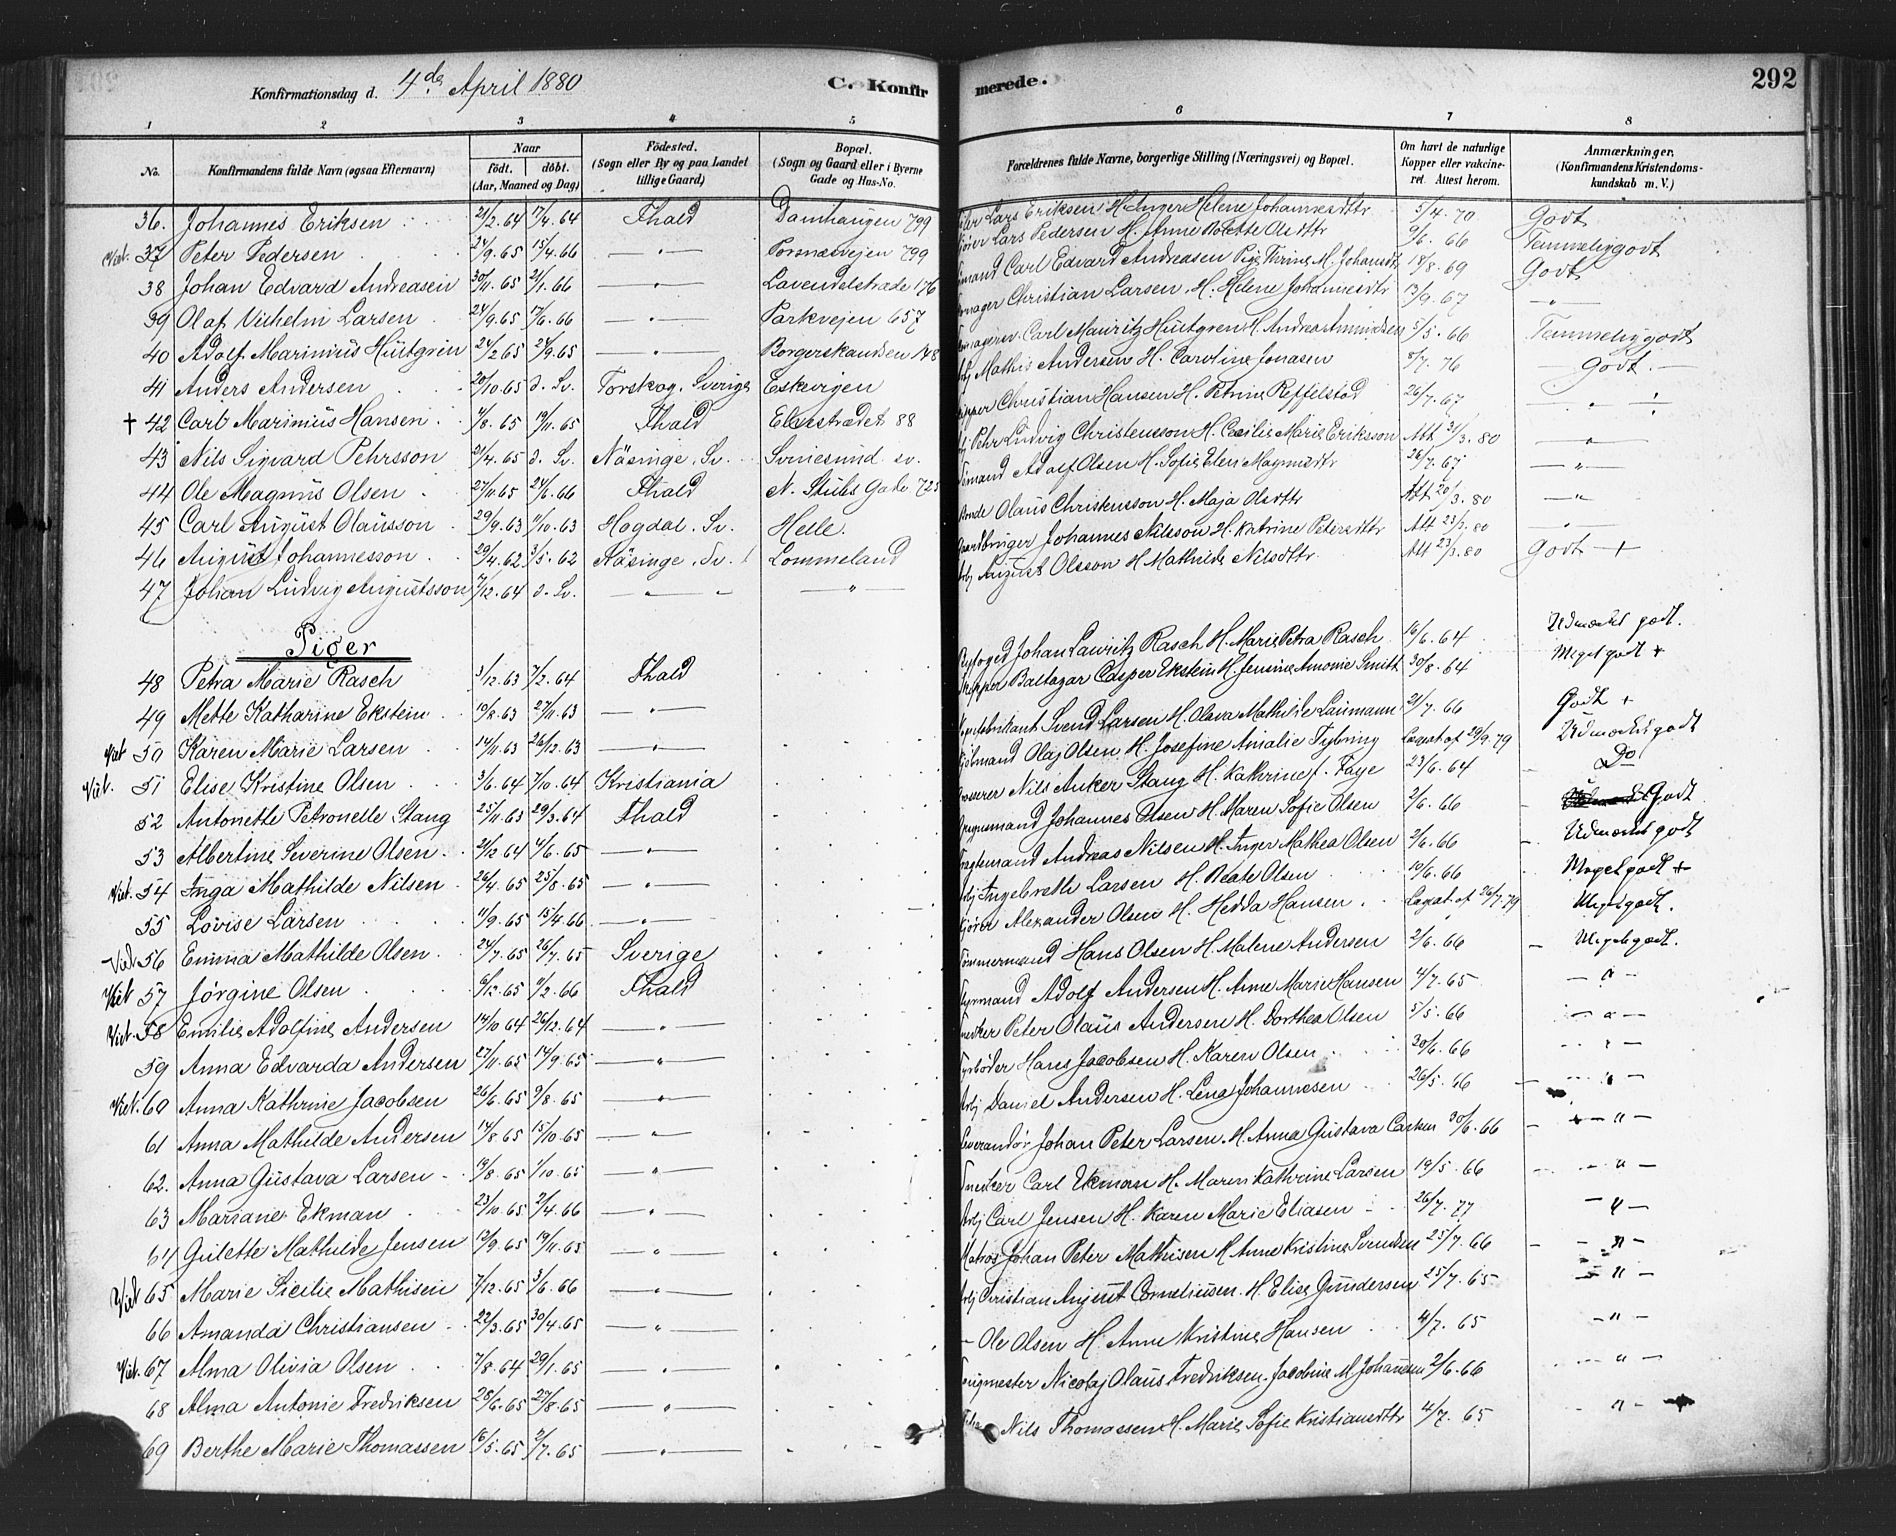 Konfirmationsdag d. 4de April 1880 C. Konfirmerede. 292
1 2 3 4 5 6 7 8
No. Konfirmandens fulde Navn (ogsaa Efternavn) Naar født. døbt. (Aar, Maaned og Dag) Fødested. (Sogn eller By og paa Landet tillige Gaard) Bopæl. (Sogn og Gaard eller i Byerne Gade og Hus-No. Forældrenes fulde Navne, borgerlige Stilling (Næringsvei) og Bopæl. Om havt de naturlige Kopper eller vakcineret. Attest herom. Anmærkninger. (Konfirmandens Kristendomskundskab m. V.)
36. Johannes Eriksen 21/2.64 17/4.64 Fhald Damhaugen 799 Lars Eriksen H. Inger Helene Johannesdtr 5/4.70 Godt
Vict. 37 Peter Pedersen 24/9.65 15/4.66 — " — 799 Lars Pedersen H. Anne Bolette Olsdttr 9/6.66 Temmelig godt
38 Johan Edvard Andreasen 30/11.65 2/1.66 — " — Lavendelstræde 176 Carl Edvard Andreasen Pige Thrine M. Johansdtr 18/8.69 Godt
39 Olaf Vilhelm Larsen 24/9.65 17/6.66 — " — Parkvejen 657 Christian Larsen. H. Helene Johannesdtr 13/9.67 — " —
40 Adolf Marinius Hultgren 24/2.65 24/9.65 — " — Borgerskandsen 148 Carl Mauritz Hultgren H. Andrea Amundsen 5/5.66 Temmelig godt
41 Anders Andersen 20/10.65 d. Sv. Torskog. Sverige Eskevigen Mathis Andersen H. Caroline Jonasen 8/7.76 — Godt. —
† 42 Carl Marinius Hansen 1/8.65 19/11.65 Fhald Elvestrædet 88 Christian Hansen H. Petrine Reffelstad 26/7.67 — " —
43 Nils Sigvard Pehrsson 21/4.65 d. Sv. Näsinge. Sv. Svinesund sv. Pehr Ludvig Christensson H. Cecilie Marie Eriksson Att 31/3.80 — " —
44 Ole Magnus Olsen 27/11.65 24/6.66 Fhald N. Stubs Gade 725 Adolf Olsen H. Sofie Elen Magnusdtr 26/7.67 — " —
45 Carl August Olausson 29/9.63 4/10.63 Hogdal. Sv. Helle. Olaus Christensson H. Maja Olsdttr Att 20/3.80 — " —
46 August Johannesson 29/4.62 3/5.62 Näsinge. Sv. Lommeland Johannes Nilsson H. Katrine Petersdttr Att 23/3.80 — " —
47 Johan Ludvig Augustsson 7/12.64 d. Sv. — " — — " — August Olsson H Mathilde Nilsdttr. Att 23/3.80 Godt +
Piger
48 Petra Marie Rasch 3/12.63 7/2.64 Fhald Byfoged Johan Lauritz Rasch H. Marie Petra Rasch 16/6.64 Udmærket godt.
49 Mette Katharine Ekstein 19/8.63 27/11.63 — " — Skipper Baltazar Casper Ekstein H. Jensine Amonie Smitt 30/8.64 Meget godt +
Vict 50 Karen Marie Larsen 14/11.63 26/12.63 — " — Svend Larsen H. Olava Mathilde Laumann 21/7.66 Godt +
Vict. 51 Elise Kristine Olsen 3/6.64 7/10.64 Kristiania Olaj Olsen H. Josefine Amalie Tybring 29/9.79 Udmærket godt
52 Antonette Petronelle Stang 25/11.63 29/3.64 Fhald Nils Anker Stang H. Kathrine f. Faye 23/6.64 Do
53 Albertine Severine Olsen 21/12.64 4/6.65 — " — Johannes Olsen H. Maren Sofie Olsen 2/6.66 Godt
Vict. 54 Inga Mathilde Nilsen 26/4.65 25/8.65 — " — Andreas Nilsen H. Inger Mathea Olsen 2/6.66 Udmærket godt
55 Lovise Larsen 11/9.65 15/4.66 — " — Ingebreth Larsen H. Beate Olsen 19/6.66 Meget godt +
Vict 56 Emma Mathilde Olsen 24/7.65 26/7.65 Sverige Alexander Olsen H. Hedda Hansen 26/7.79 Meget godt.
Vict 57 Jørgine Olsen 6/12.65 4/2.66 Fhald Tømmermand Hans Olsen H. Malene Andersen 2/6.66 Meget godt.
Vict. 58 Emilie Adolfine Andersen 14/10.64 26/12.64 — " — Styrmand Adolf Andersen H. Anne Marie Hansen 4/7.65 — " —
59 Anna Edvarda Andersen 27/11.65 14/9.65 — " — Peter Olaus Andersen H. Dorthea Olsen 5/5.66 — " —
Vict. 60 Anna Kathrine Jacobsen 26/6.65 9/8.65 — " — Fyrbøder Hans Jacobsen H. Karen Olsen 20/6.66 — " —
61 Anna Mathilde Andersen 14/8.65 15/10.65 — " — Arbj Daniel Andersen H. Lena Johannesen 26/5.66 — " —
62. Anna Gustava Larsen 19/8.65 1/10.65 — " — Leverandør Johan Peter Larsen. H. Anna Gustava Carlsen 30/6.66 — " —
63 Mariane Ekman 23/10.65 2/4.66 — " — Snedker Carl Ekman H. Maren Kathrine Larsen 19/5.66 — " —
64 Gulette Mathilde Jensen 12/9.65 19/11.65 — " — Arbj Carl Jensen H. Karen Marie Eliasen 26/7.77 — " —
Vict 65 Marie Sicilie Mathisen 7/12.65 3/6.66 — " — Matros Johan Peter Mathisen H Anne Kristine Svendsen 25/7.66 — " —
66 Amanda Christiansen 22/3.65 30/4.65 — " — Arbj Christian August Corneliusen. H. Elise Gundersen 25/7.65 — " —
Vict. 67 Alma Olivia Olsen 7/8.64 29/1.65 — " — — Ole Olsen H. Anne Kristine Hansen 4/7.65 — " —
68 Alma Antonie Fredriksen 28/6.65 27/8.65 — " — Nicolaj Olaus Fredriksen. Jacobine M Johansen 2/6.66 — " —
69 Berthe Marie Thomassen 16/5.65 2/7.65 — " — Nils Thomassen H. Marie Sofie Kristiansdttr 4/7.65 — " —